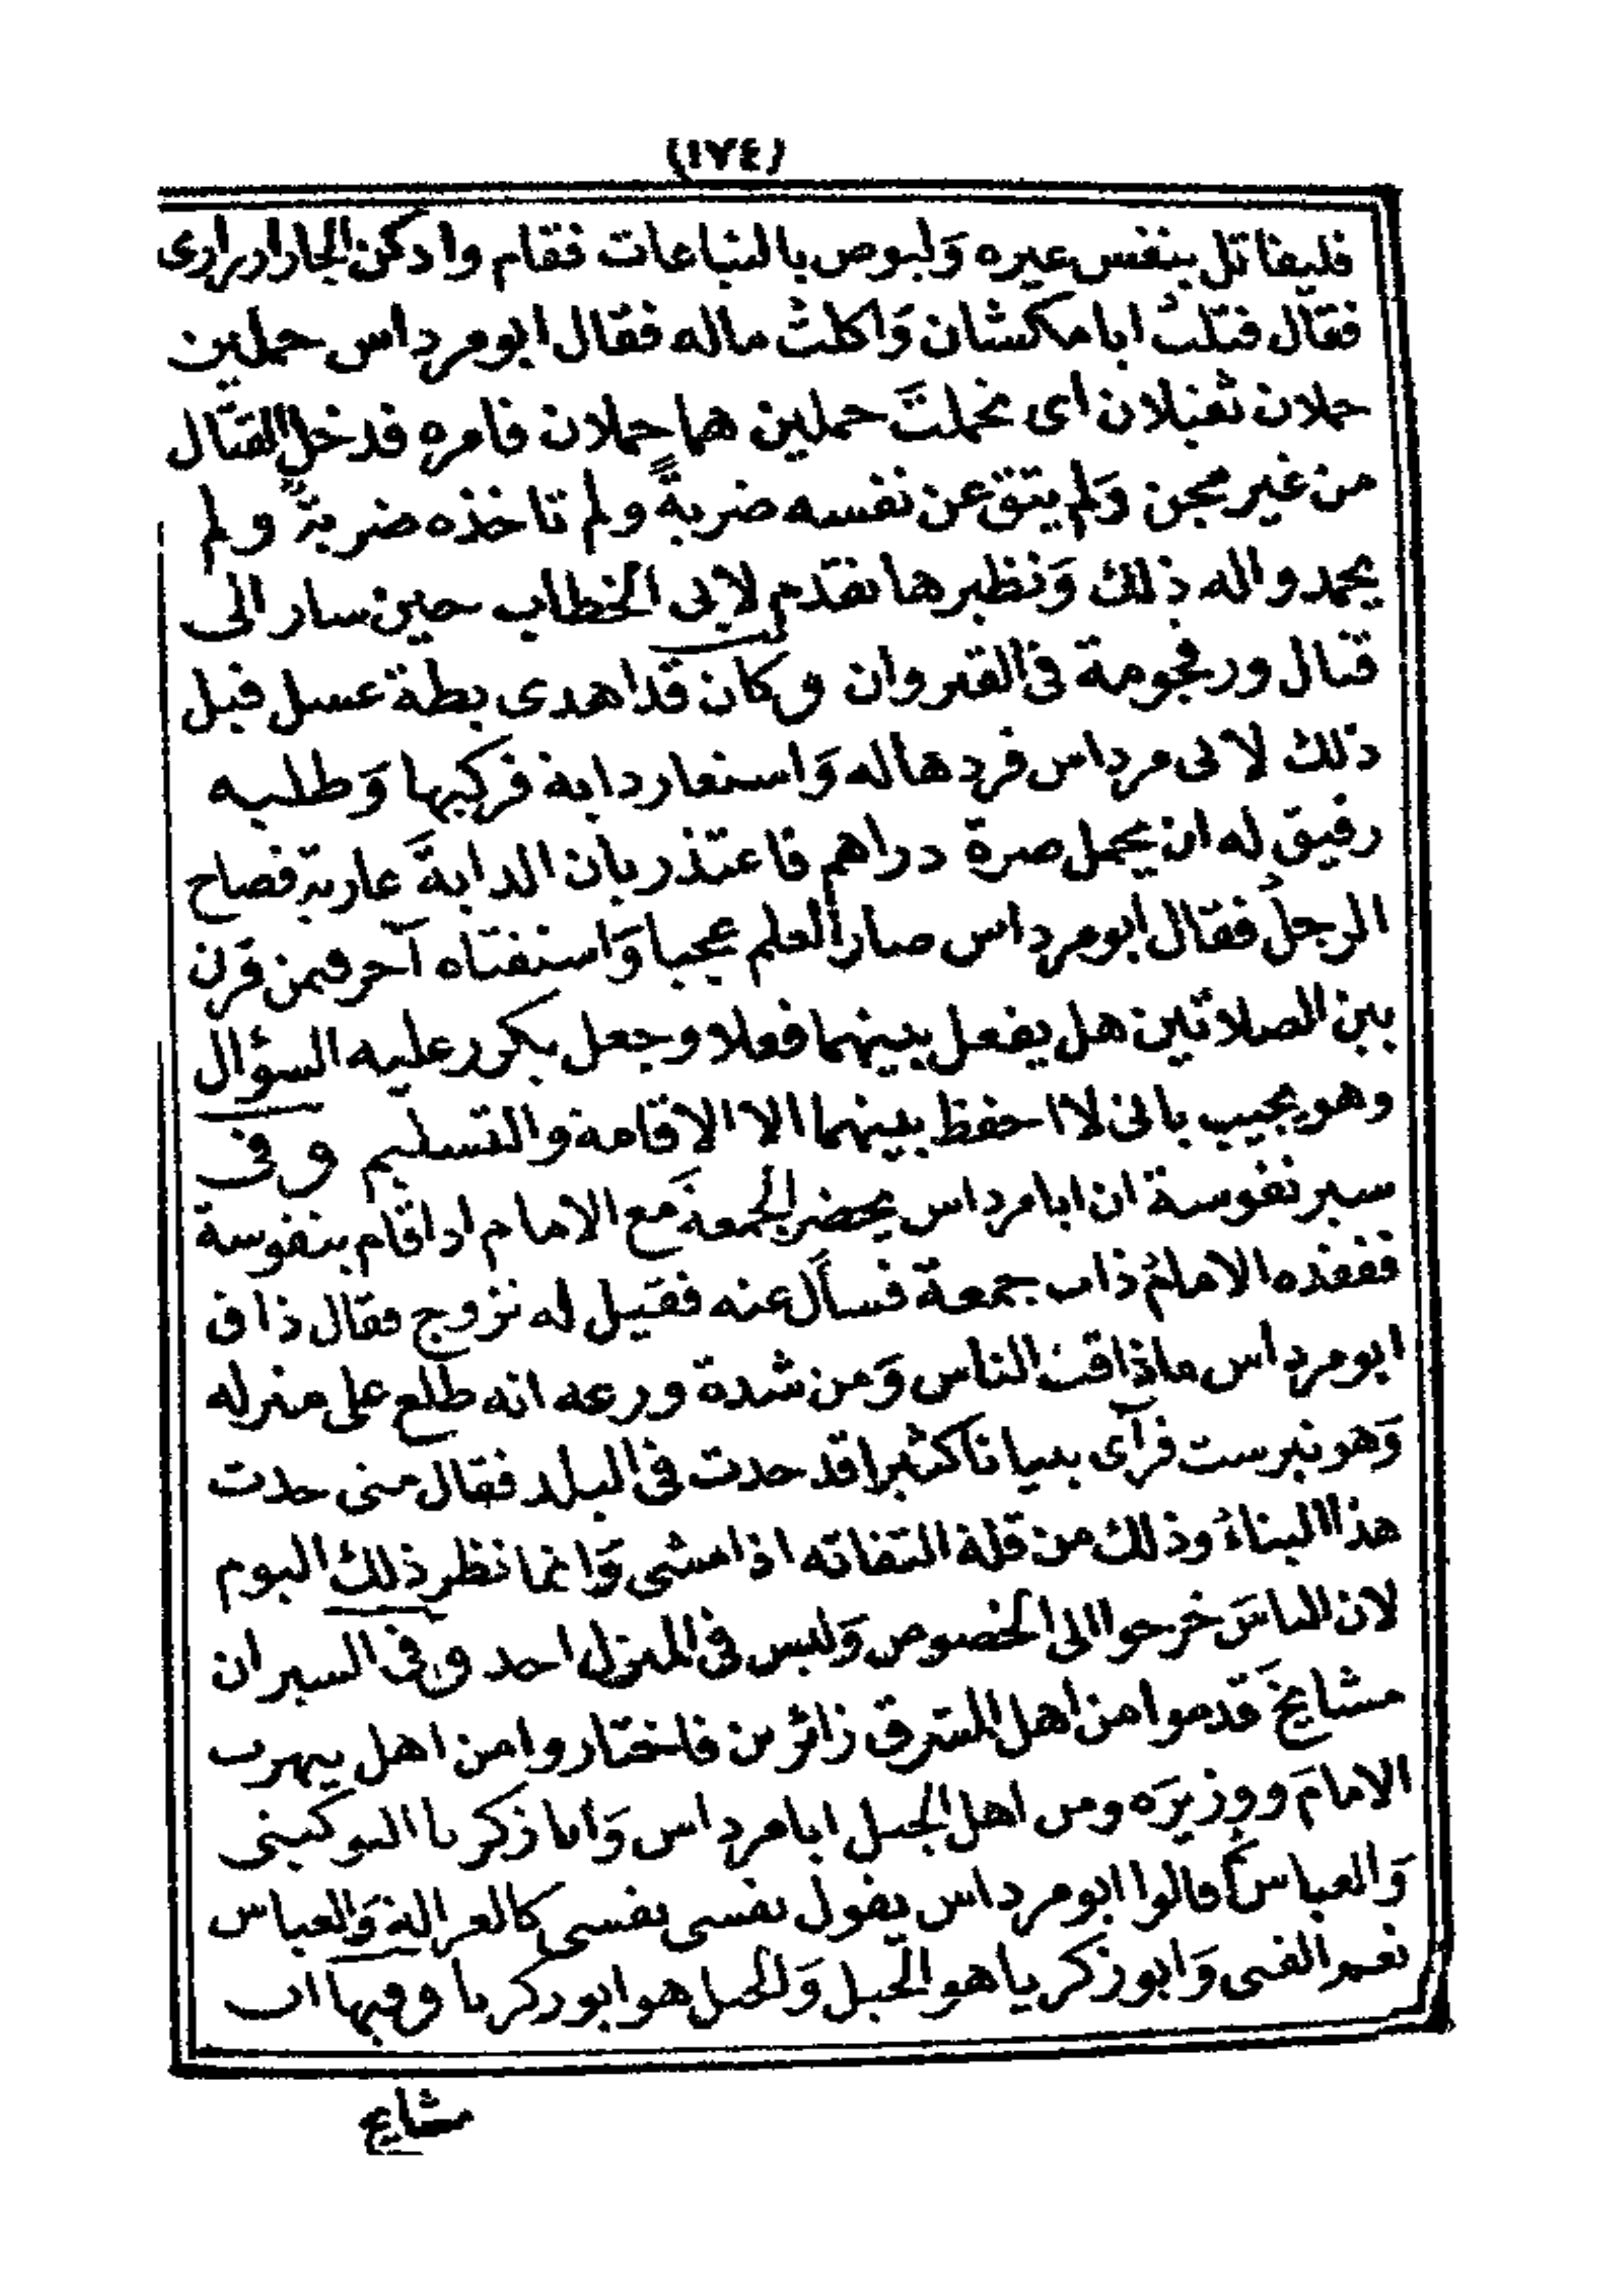 (١٧٤)
فليقاتل بنفس غيره وَليوص بالتباعات فقام وادكن الجارادرارى
فقال قتلتُ ابا مكسْان وَاكلتْ ماله فقال ابو مرداس حملين
حملان ثقيلان اى تحملتَ حملين هما حملان فامره فدخل القتال
من غير مجن وَلم يتق عن نفسه ضربةً ولم تاخذه ضربةٌ ولم
يحمدوا له ذلك وَنظيرها تقدم لابى الخطاب حين سار الى
قتال ورفجومة فى القيروان وكان قد اهدى بطة عسل قبل
ذلك لابى مرداس فردها له وَاستعار دابة فركبها وَطلبه
رفيق له ان يحمل صرة دراهم فاعتذر بان الدابةَ عارية فصاح
الرجلُ فقال ابو مرداس صار العلم عجبا وَاستفتاه آخر فيمن قرن
بين الصلاتين هل يفعل بينهما فعلا وجعل يكرر عليه السؤال
وهو يجيب بانى لا احفظ بينهما الا الاقامة والتسليم وفى
سير نفوسة ان ابا مرداس يحضر الجمعةَ مع الامام اذا اقام بنفوسة
ففقده الامامُ ذات جمعة فسأل عنه فقيل له تزوج فقال ذاق
ابو مرداس ماذاقت الناس وَمن شدة ورعه انه طلع على منزله
وَهو تبرست فرآى بنيانا كثيرا قد حدث فى البلد فقال متى حدث
هذا البناءُ وذلك من قلة التفاته اذا مشى وَانما نظر ذلك اليوم
لان الناسَ خرجوا الى الخصوص وَليس فى المنزل احد وفى السير ان
مشايخَ قدموا من اهل المشرق زائرين فاختاروا من اهل تيهرت
الامامَ ووزيرَه ومن اهل الجبل ابا مرداس وَابا زكريا التوكيتى
وَالعباسَ قالوا ابو مرداس يقول نفسى نفسى كالغزالة وَالعباس
نعم الفتى وَابو زكريا هو الجبل وَالجبل هو ابو زكريا وفيها ان
مشايخ